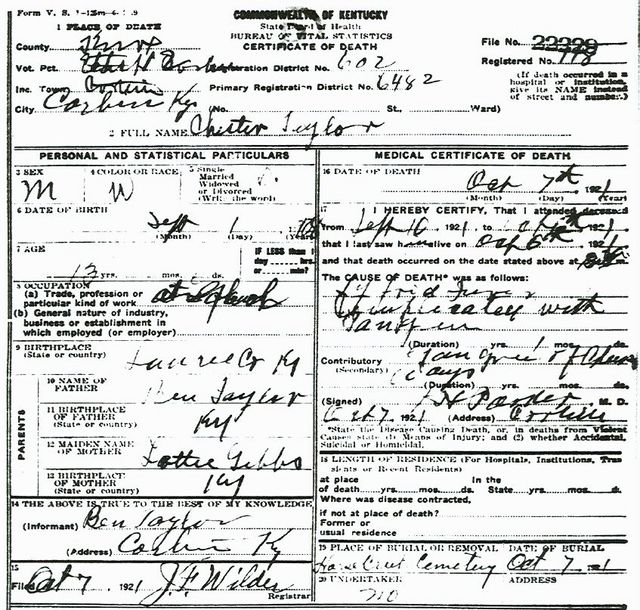 Form V. S.
COMMONWEALTH OF KENTUCKY
State Board of Health
BUREAU OF VITAL STATISTICS
CERTIFICATE OF DEATH
1 PLACE OF DEATH
County Knox
File No. 22229
Registered No. 118
Vot. Pct. Registration District No. 602
(If death occurred in a hospital or institution, give its NAME instead of street and number.)
Inc. Town Corbin Primary Registration District No. 6482
City Corbin Ky (No. St., Ward)
2 FULL NAME Chester Taylor
PERSONAL AND STATISTICAL PARTICULARS
3 SEX
M
4 COLOR OR RACE
W
5 Single
Married
Widowed
or Divorced
(Write the word)
S.
6 DATE OF BIRTH
Sept 1
(Month) (Day) (Year)
7 AGE
13 yrs. mos. ds.
IF LESS than 1
day hrs.
or min?
8 OCCUPATION
(a) Trade, profession or
particular kind of work at School
(b) General nature of industry,
business or establishment in
which employed (or employer)
9 BIRTHPLACE
(State or country) Laurel Co Ky
PARENTS
10 NAME OF
FATHER Ben Taylor
11 BIRTHPLACE
OF FATHER
(State or country) Ky
12 MAIDEN NAME
OF MOTHER Lottie Gibbs
13 BIRTHPLACE
OF MOTHER
(State or country) Ky
14 THE ABOVE IS TRUE TO THE BEST OF MY KNOWLEDGE
(Informant) Ben Taylor
(Address) Corbin Ky
15
Filed Oct 7, 1921 J. F. Wilder
Registrar
MEDICAL CERTIFICATE OF DEATH
16 DATE OF DEATH
Oct 7th, 1921
(Month) (Day) (Year)
17 I HEREBY CERTIFY, That I attended deceased
from Sept 16 1921 to 1921
that I last saw h alive on Oct 6th, 1921
and that death occurred on the date stated above at m.
The CAUSE OF DEATH* was as follows:
Typhoid Fever
Complicated with
(Duration) yrs. mos. ds.
Contributory
(Secondary)
(Duration) yrs. mos. ds.
(Signed) M. D.
Oct 7, 1921 (Address) Corbin
*State the Disease Causing Death, or, in deaths from Violent
Causes state (1) Means of Injury; and (2) whether Accidental,
Suicidal or Homicidal.
18 LENGTH OF RESIDENCE (For Hospitals, Institutions, Tran
sients or Recent Residents)
at place In the
of death yrs. mos. ds. State yrs. mos. ds.
Where was disease contracted,
if not at place of death?
Former or
usual residence
19 PLACE OF BURIAL OR REMOVAL DATE OF BURIAL
Cemetery Oct 7 1921
20 UNDERTAKER ADDRESS
no